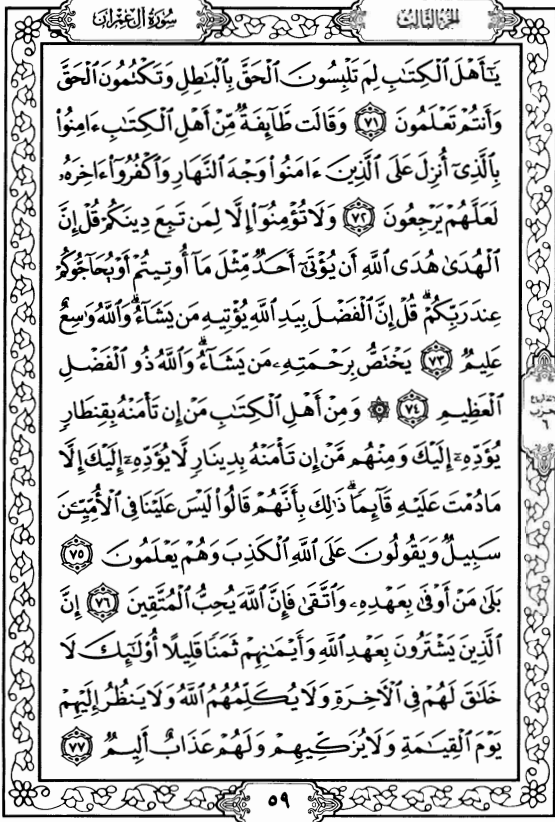 سُورَةُ آلِ عِمْرَانَ
الجُزْءُ الثَّالِثُ
يَٰٓأَهْلَ ٱلْكِتَٰبِ لِمَ تَلْبِسُونَ ٱلْحَقَّ بِٱلْبَٰطِلِ وَتَكْتُمُونَ ٱلْحَقَّ
وَأَنتُمْ تَعْلَمُونَ ٧١ وَقَالَت طَّآئِفَةٌ مِّنْ أَهْلِ ٱلْكِتَٰبِ ءَامِنُوا۟
بِٱلَّذِىٓ أُنزِلَ عَلَى ٱلَّذِينَ ءَامَنُوا۟ وَجْهَ ٱلنَّهَارِ وَٱكْفُرُوٓا۟ ءَاخِرَهُۥ
لَعَلَّهُمْ يَرْجِعُونَ ٧٢ وَلَا تُؤْمِنُوٓا۟ إِلَّا لِمَن تَبِعَ دِينَكُمْ قُلْ إِنَّ
ٱلْهُدَىٰ هُدَى ٱللَّهِ أَن يُؤْتَىٰٓ أَحَدٌ مِّثْلَ مَآ أُوتِيتُمْ أَوْ يُحَآجُّوكُمْ
عِندَ رَبِّكُمْ ۗ قُلْ إِنَّ ٱلْفَضْلَ بِيَدِ ٱللَّهِ يُؤْتِيهِ مَن يَشَآءُ ۗ وَٱللَّهُ وَٰسِعٌ
عَلِيمٌ ٧٣ يَخْتَصُّ بِرَحْمَتِهِۦ مَن يَشَآءُ ۗ وَٱللَّهُ ذُو ٱلْفَضْلِ
ٱلْعَظِيمِ ٧٤ ۞ وَمِنْ أَهْلِ ٱلْكِتَٰبِ مَنْ إِن تَأْمَنْهُ بِقِنطَارٍ
يُؤَدِّهِۦٓ إِلَيْكَ وَمِنْهُم مَّنْ إِن تَأْمَنْهُ بِدِينَارٍ لَّا يُؤَدِّهِۦٓ إِلَيْكَ إِلَّا
مَا دُمْتَ عَلَيْهِ قَآئِمًا ۗ ذَٰلِكَ بِأَنَّهُمْ قَالُوا۟ لَيْسَ عَلَيْنَا فِى ٱلْأُمِّيِّۦنَ
سَبِيلٌ وَيَقُولُونَ عَلَى ٱللَّهِ ٱلْكَذِبَ وَهُمْ يَعْلَمُونَ ٧٥
بَلَىٰ مَنْ أَوْفَىٰ بِعَهْدِهِۦ وَٱتَّقَىٰ فَإِنَّ ٱللَّهَ يُحِبُّ ٱلْمُتَّقِينَ ٧٦ إِنَّ
ٱلَّذِينَ يَشْتَرُونَ بِعَهْدِ ٱللَّهِ وَأَيْمَٰنِهِمْ ثَمَنًا قَلِيلًا أُو۟لَٰٓئِكَ لَا
خَلَٰقَ لَهُمْ فِى ٱلْءَاخِرَةِ وَلَا يُكَلِّمُهُمُ ٱللَّهُ وَلَا يَنظُرُ إِلَيْهِمْ
يَوْمَ ٱلْقِيَٰمَةِ وَلَا يُزَكِّيهِمْ وَلَهُمْ عَذَابٌ أَلِيمٌ ٧٧
٦
٥٩